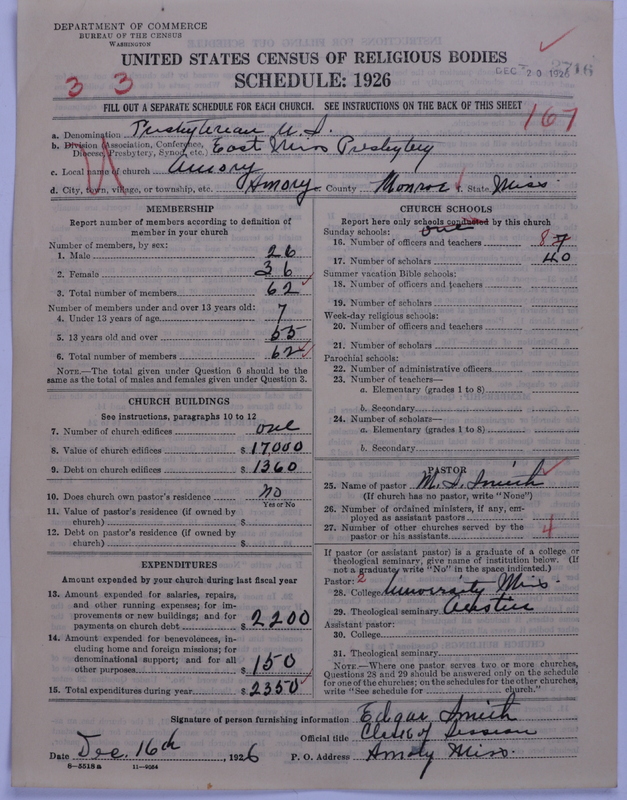 DEPARTMENT OF COMMERCE
BUREAU OF THE CENSUS
WASHINGTON
UNITED STATES CENSUS OF RELIGIOUS BODIES
SCHEDULE: 1926
DEC 20 1926
3 3
FILL OUT A SEPARATE SCHEDULE FOR EACH CHURCH. SEE INSTRUCTIONS ON THE BACK OF THIS SHEET
167
a. Denomination Presbyterian U.S.
b. Division (Association, Conference, Diocese, Presbytery, Synod, etc.) East Miss Presbytery
c. Local name of church Amory
d. City, town, village, or township, etc. Amory County Monroe State Miss.
MEMBERSHIP
Report number of members according to definition of
member in your church
Number of members, by sex:
1. Male 26
2. Female 36
3. Total number of members 62
Number of members under and over 13 years old:
4. Under 13 years of age 7
5. 13 years old and over 55
6. Total number of members 62
NOTE.—The total given under Question 6 should be
same as the total of males and females given under Question 3.
CHURCH BUILDINGS
See instructions, paragraphs 10 to 12
7. Number of church edifices one
8. Value of church edifices $ 17,000
9. Debt on church edifices $ 1360
10. Does church own pastor's residence No
Yes or No
11. Value of pastor's residence (if owned by
church) $
12. Debt on pastor's residence (if owned by
church) $
EXPENDITURES
Amount expended by your church during last fiscal year
13. Amount expended for salaries, repairs,
and other running expenses; for im-
provements or new buildings; and for
payments on church debt $ 2200
14. Amount expended for benevolences, in-
cluding home and foreign missions; for
denominational support; and for all
other purposes $ 150
15. Total expenditures during year $ 2350
CHURCH SCHOOLS
Report here only schools conducted by this church
Sunday schools: one
16. Number of officers and teachers 8 7
17. Number of scholars 40
Summer vacation Bible schools:
18. Number of officers and teachers
19. Number of scholars
Week-day religious schools:
20. Number of officers and teachers
21. Number of scholars
Parochial schools:
22. Number of administrative officers
23. Number of teachers—
a. Elementary (grades 1 to 8)
b. Secondary
24. Number of scholars—
a. Elementary (grades 1 to 8)
b. Secondary
PASTOR
25. Name of pastor Smith
(If church has no pastor, write "None")
26. Number of ordained ministers, if any, em-
ployed as assistant pastors
27. Number of other churches served by the
pastor or his assistants 4
If pastor (or assistant pastor) is a graduate of a college or
theological seminary, give name of institution below. (If
not a graduate write "No" in the space indicated.)
Pastor: 2
28. College University Miss.
29. Theological seminary Austin
Assistant pastor:
30. College
31. Theological seminary
NOTE.—Where one pastor serves two or more churches,
Questions 28 and 29 should be answered only on the schedule
for one of the churches; on the schedules for the other churches,
write "See schedule for church."
Signature of person furnishing information Edgar Smith
Official title Clerk of Session
Date Dec. 16th, 1926 P. O. Address Amory Miss.
8-5518a 11-9054